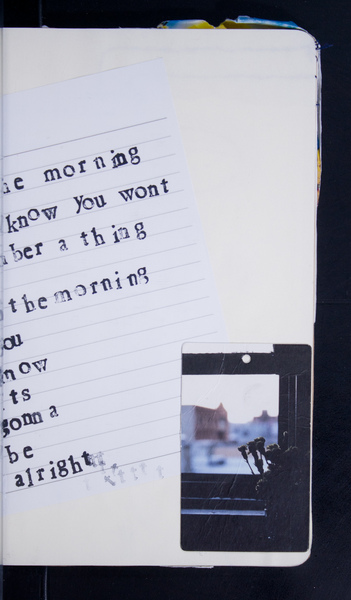 he morning
know you wont
ber a thing
the morning
ou
now
ts
gonna
be
alright